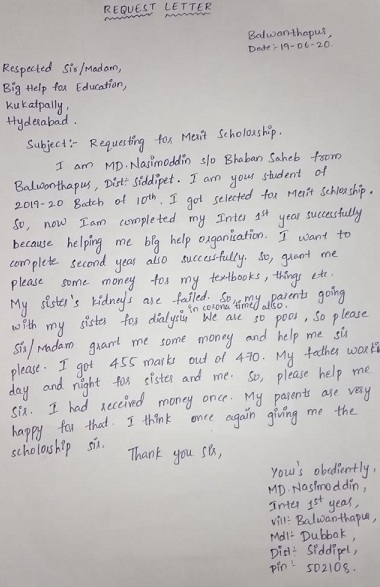 REQUEST LETTER
Balwanthapur,
Date:- 19-06-20.
Respected Sir/Madam,
Big Help for Education,
Kukatpally,
Hyderabad.
Subject:- Requesting for Merit Scholorship.
I am MD.Nasimoddin s/o Bhaban Saheb from
Balwanthapur, Dist:- Siddipet. I am your student of
2019-20 Batch of 10th. I got selected for Merit Schlorship.
So, now Iam completed my Inter 1st year successfully
because helping me big help organisation. I want to
complete second year also successfully. So, grant me
please some money for my textbooks, things etc.
My sister's kidneys are failed. So, my parents going
with my sister for dialysis in corona timed also. We are so poor, So please
Sir/Madam grant me some money and help me sir
please. I got 455 marks out of 470. My father work
day and night for sister and me. So, please help me
Sir. I had received money once. My parents are very
happy for that. I think once again giving me the
scholorship sir.
Thank you Sir,
Your's obediently,
MD.Nasimoddin,
Inter 1st year,
Vill:- Balwanthapur,
Mdl:- Dubbak,
Dist:- Siddipet,
Pin:- 502108.